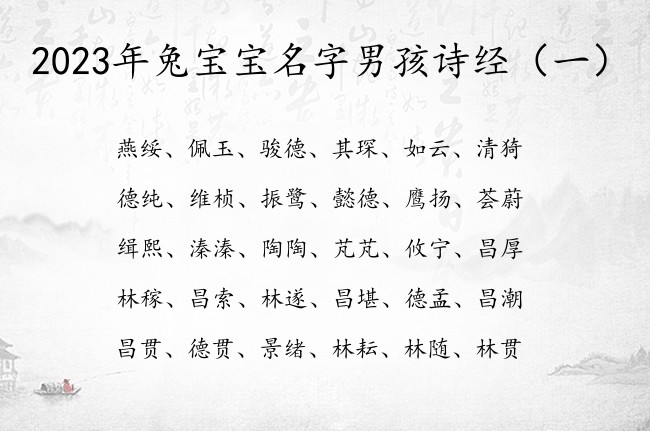 2023年兔宝宝名字男孩诗经（一）
燕绥、佩玉、骏德、其琛、如云、清猗
德纯、维桢、振鹭、懿德、鹰扬、荟蔚
缉熙、溱溱、陶陶、芃芃、攸宁、昌厚
林稼、昌索、林遂、昌堪、德孟、昌潮
昌贯、德贯、景绪、林耘、林随、林贯